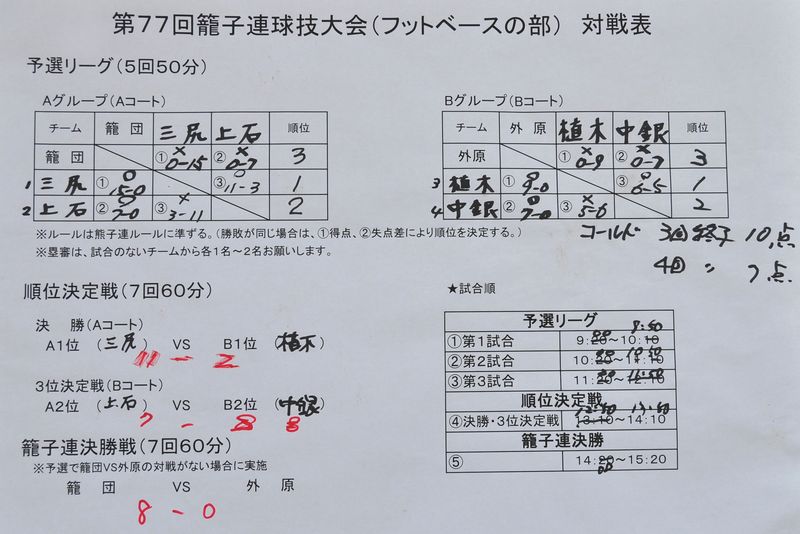 第77回籠子連球技大会(フットベースの部) 対戦表
予選リーグ(5回50分)
Aグループ(Aコート)
チーム 籠団 三尻 上石 順位
籠団 ①× 0-15 ②× 0-7 3
1 三尻 ①○ 15-0 ③○ 11-3 1
2 上石 ②○ 7-0 ③× 3-11 2
Bグループ(Bコート)
チーム 外原 植木 中銀 順位
外原 ①× 0-9 ②× 0-7 3
3 植木 ①○ 9-0 ③○ 6-5 1
4 中銀 ②○ 7-0 ③× 5-6 2
※ルールは熊子連ルールに準ずる。(勝敗が同じ場合は、①得点、②失点差により順位を決定する。)
※塁審は、試合のないチームから各1名~2名お願いします。
コールド 3回終了 10点
4回 〃 7点
順位決定戦(7回60分)
決 勝(Aコート)
A1位 (三尻) VS B1位 (植木)
11 - 2
3位決定戦(Bコート)
A2位 (上石) VS B2位 (中銀)
7 - 8
籠子連決勝戦(7回60分)
※予選で籠団VS外原の対戦がない場合に実施
籠 団 VS 外 原
8 - 0
★試合順
予選リーグ
8:50
①第1試合 9:20~10:10
②第2試合 10:20~
③第3試合 11:20~12:10
順位決定戦
④決勝・3位決定戦 13:10~14:10
籠子連決勝
⑤ 14:20~15:20
00